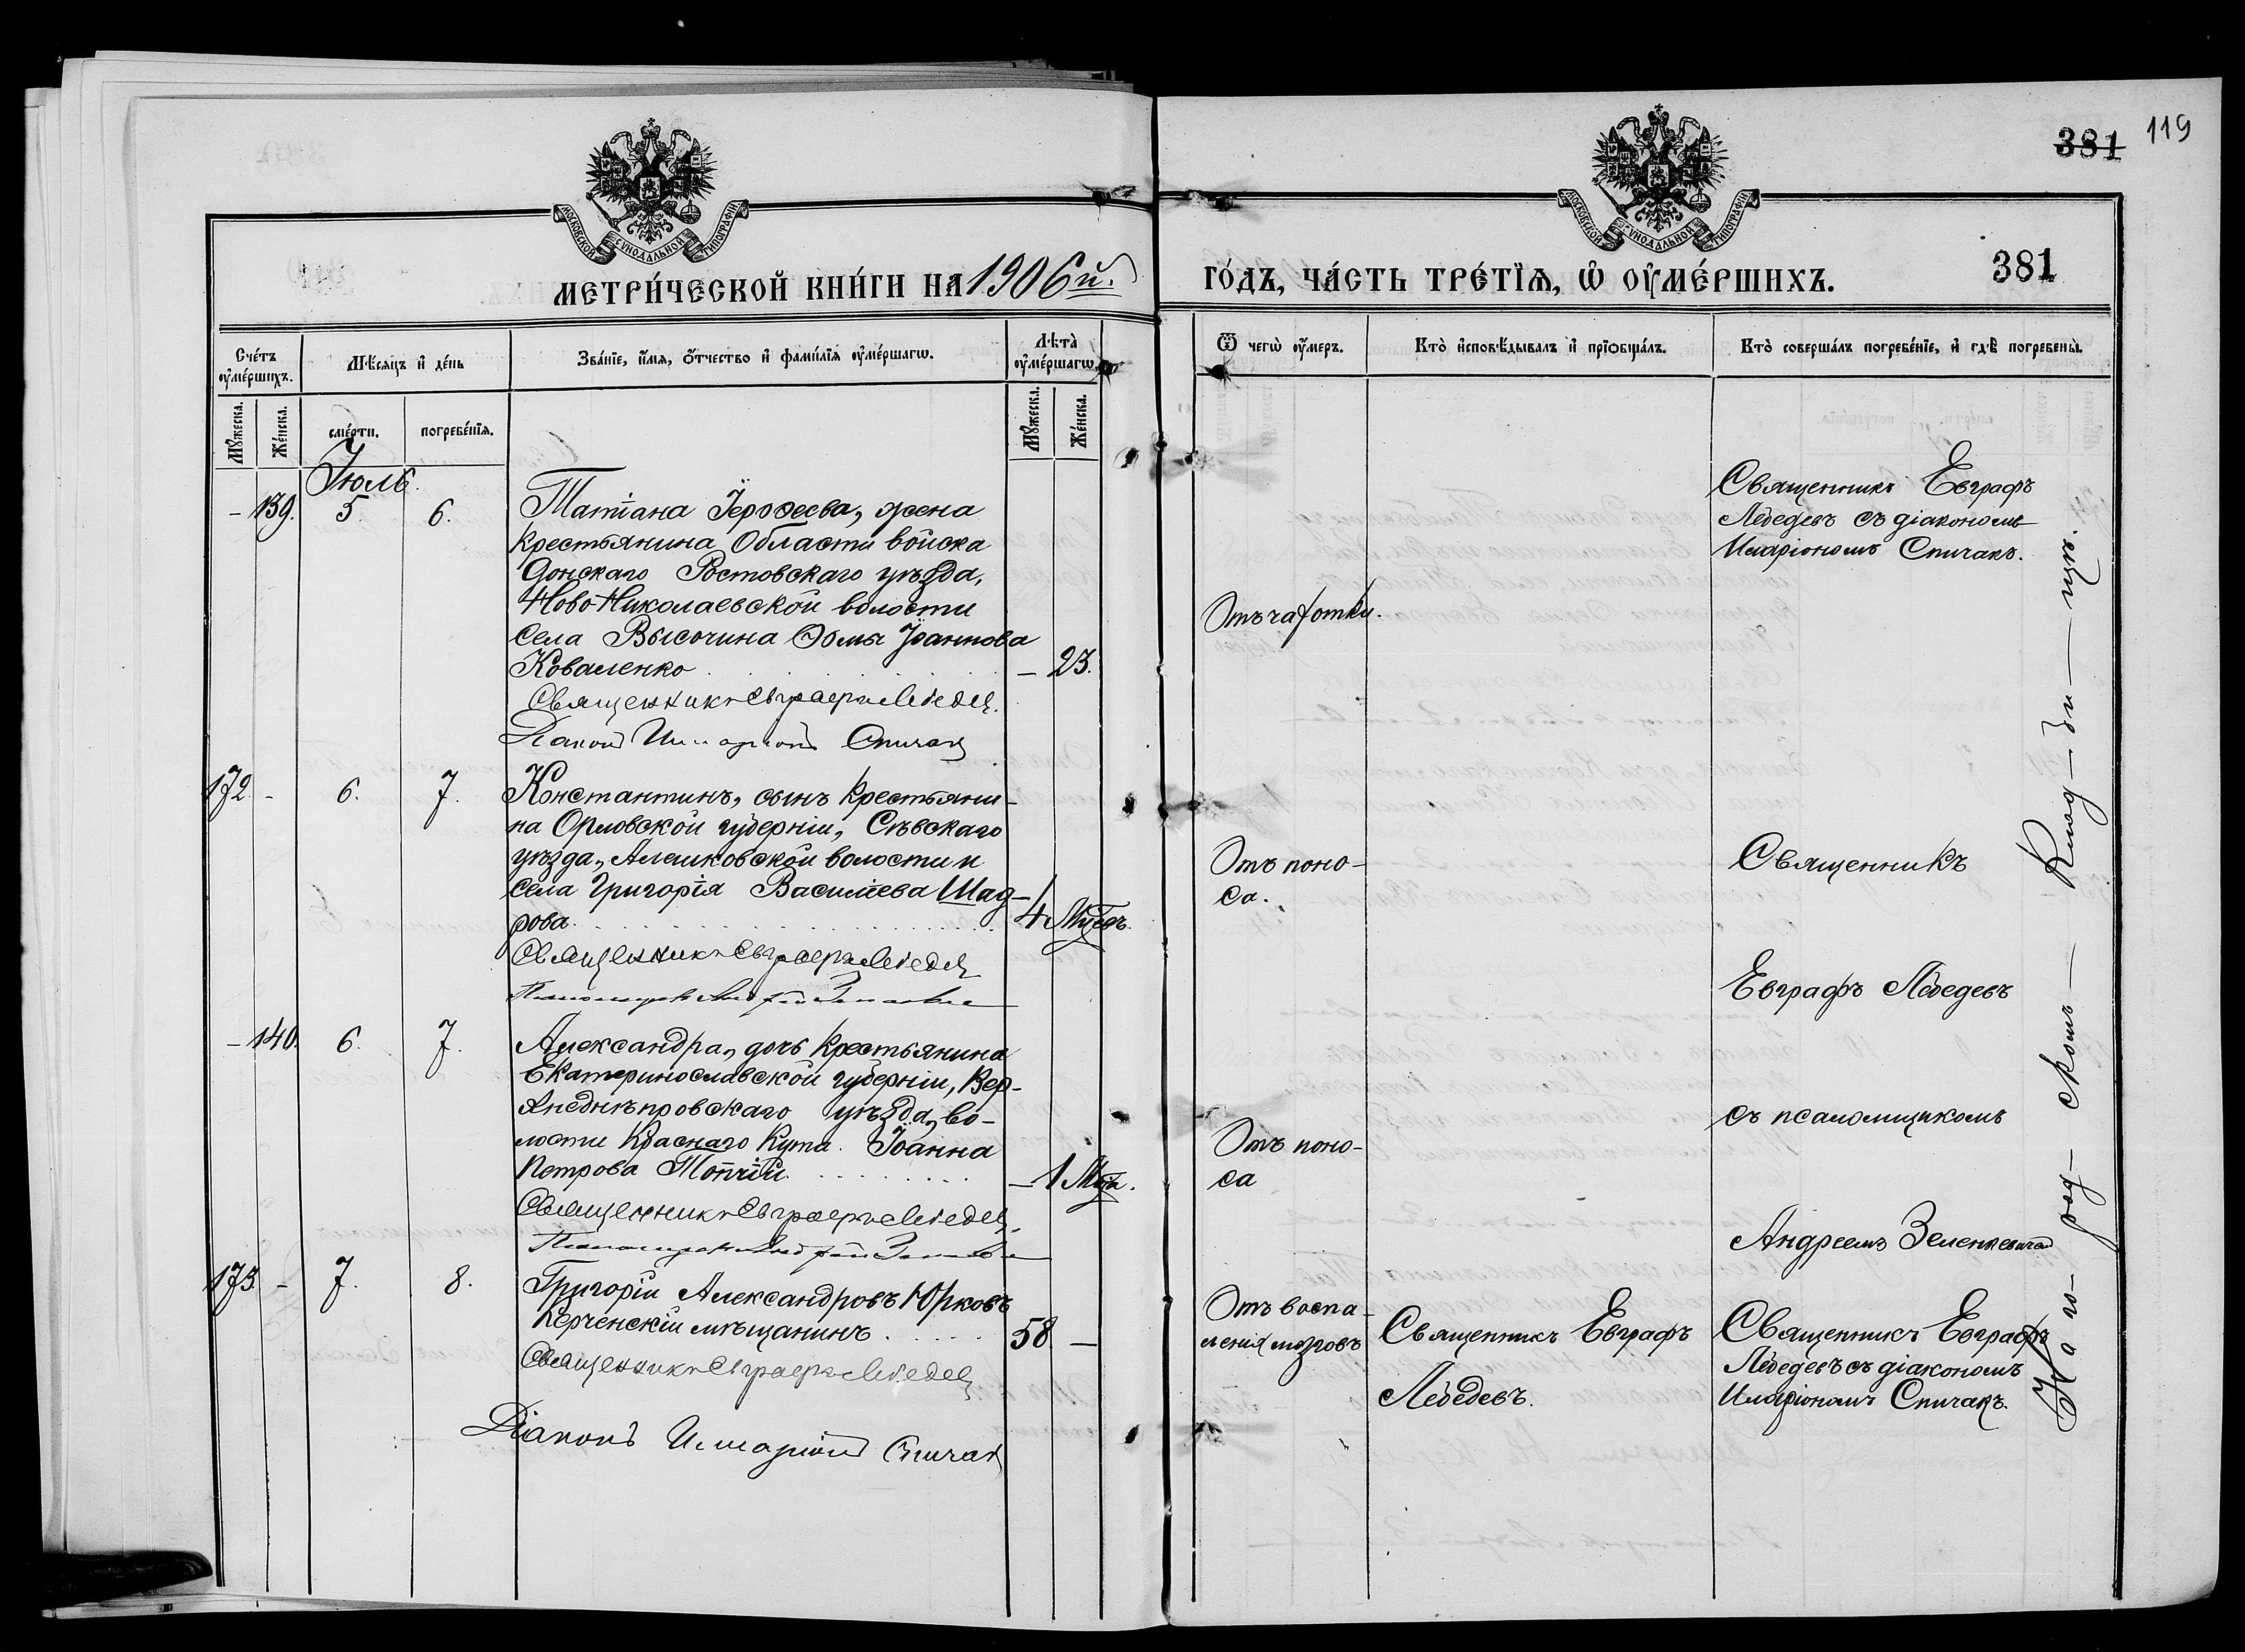 381 119
МОСКОВСКОЙ СѴНОДАЛЬНОЙ ТИПОГРАФІИ
МОСКОВСКОЙ СѴНОДАЛЬНОЙ ТИПОГРАФІИ
МЕТРИ́ЧЕСКОЙ КНИ́ГИ НА 1906 й.
ГО́ДЪ, ЧА́СТЬ ТРЕ́ТІѦ, Ѡ ОУМЕ́РШИХЪ.
381
Сче́тъ оуме́ршихъ.
Мѣ́сяцъ и де́нь
Зва́ніе, и́мя, о́тчество и фами́лія оуме́ршагѡ.
Лѣта̀ оуме́ршагѡ.
Ѿ чегѡ̀ оу́меръ.
Кто̀ исповѣ́дывалъ и пріобща́лъ.
Кто̀ соверша́лъ погребе́ніе, и гдѣ̀ погребены̀.
Мꙋжеска.
Же́нска.
сме́рти.
погребе́нія.
Мꙋжеска.
Же́нска.
Іюль.
- 139. 5. 6.
Татіана Іероѳеева, жена
крестьянина Области войска
Донскаго Ростовскаго уѣзда,
Ново Николаевской волости
села Высочина Ѳома Іоаннова
Коваленко . . . . . . . - 23.
Священникъ Евграфъ Лебедевъ.
Діаконъ Иларіонъ Спичакъ
Отъ чахотки.
Священникъ Евграфъ
Лебедевъ съ діакономъ
Иларіономъ Спичакъ.
172. - 6. 7.
Константинъ, сынъ крестьяни-
на Орловской губерніи, Сѣвскаго
уѣзда, Алешковской волости и
села Григорія Василіева Шад-
рова. . . . . . . . 4 Мцевъ.
Священникъ Евграфъ Лебедевъ
Псаломщикъ Андрей Зеленкевичъ
Отъ поно-
са.
Священникъ
Евграфъ Лебедевъ
- 140. 6. 7.
Александра, дочь крестьянина
Екатеринославской губерніи, Вер-
хнеднѣпровскаго уѣзда, во-
лости Краснаго Кута. Іоанна
Петрова Топчій. . . . . . . - 1 Мца.
Священникъ Евграфъ Лебедевъ.
Псаломщикъ Андрей Зеленкевичъ
Отъ поно-
са
съ псаломщикомъ
Андреемъ Зеленкевичемъ
173. - 7. 8.
Григорій Александровъ Юрковъ
Керченскій мѣщанинъ . . . . . 58. -
Священникъ Евграфъ Лебедевъ
Діаконъ Иларіонъ Спичакъ
Отъ воспа-
ленія мозговъ
Священникъ Евграфъ
Лебедевъ.
Священникъ Евграфъ
Лебедевъ съ діакономъ
Иларіономъ Спичакъ.
На го- род- скомъ — Клад- би — щѣ.